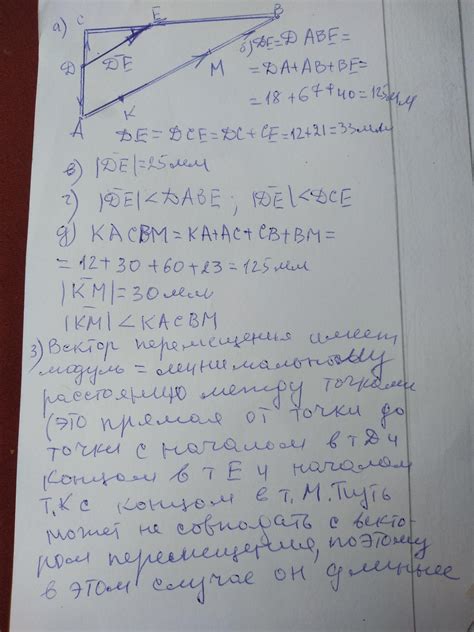 а) C E B
D DE M
A K
б) DE = DABE =
= DA + AB + BE =
= 18 + 67 + 40 = 125 мм
DE = DCE = DC + CE = 12 + 21 = 33 мм
в) |DE| = 25 мм
г) |DE| < DABE ; |DE| < DCE
д) KACBM = KA + AC + CB + BM =
= 12 + 30 + 60 + 23 = 125 мм
|KM| = 30 мм
|KM| < KACBM
3) Вектор перемещения имеет
модуль = минимальному
расстоянию между точками
(это прямая от точки до
точки с началом в т D и
концом в т E и началом
т. K с концом в т. M. Путь
может не совпадать с векто-
ром перемещения, поэтому
в этом случае он длиннее